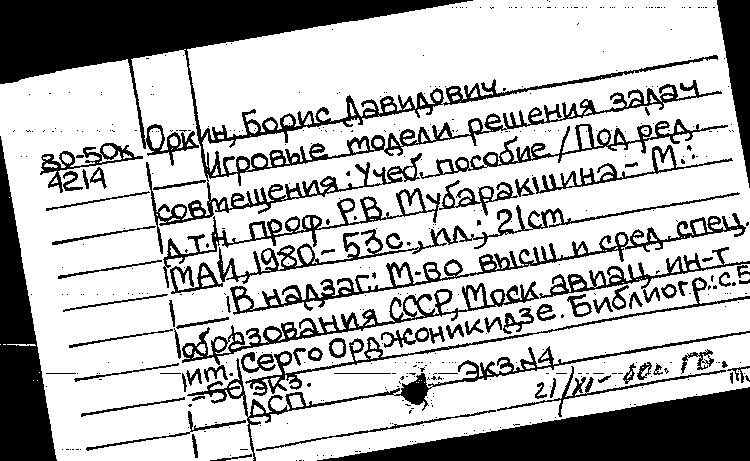 Оркин, Борис Давидович.
80-50к
4214
Игровые модели решения задач
совмещения: Учеб. пособие / Под ред.
д.т.н. проф. Р.В. Мубаракшина.- М.:
МАИ, 1980.- 53с., ил.; 21см.
В надзаг.: М-во высш. и сред. спец.
образования СССР, Моск. авиац. ин-т
им. Серго Орджоникидзе. Библиогр.: с.5
:-50 экз.
ДСП. экз.N4.
21/XI-